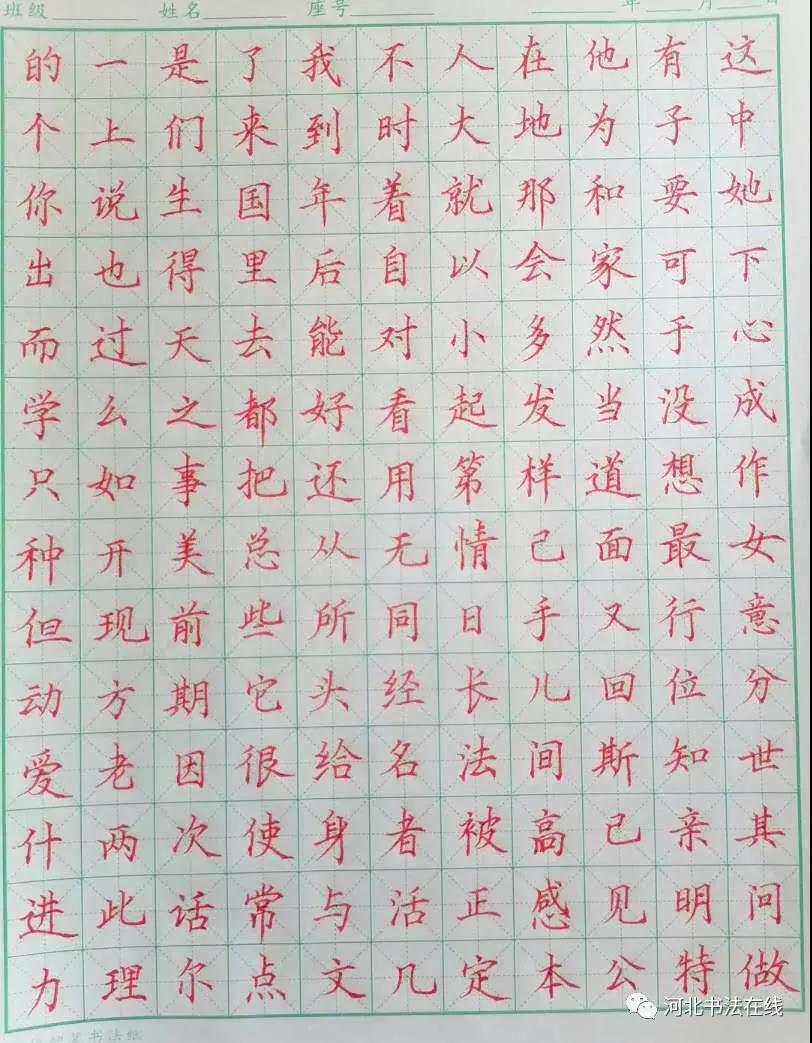 班级 姓名 座号 年 月 日
的一是了我不人在他有这
个上们来到时大地为子中
你说生国年着就那和要她
出也得里后自以会家可下
而过天去能对小多然于心
学么之都好看起发当没成
只如事把还用第样道想作
种开美总从无情己面最女
但现前些所同日手又行意
动方期它头经长儿回位分
爱老因很给名法间斯知世
什两次使身者被高已亲其
进此话常与活正感见明问
力理尔点文几定本公特做
河北书法在线